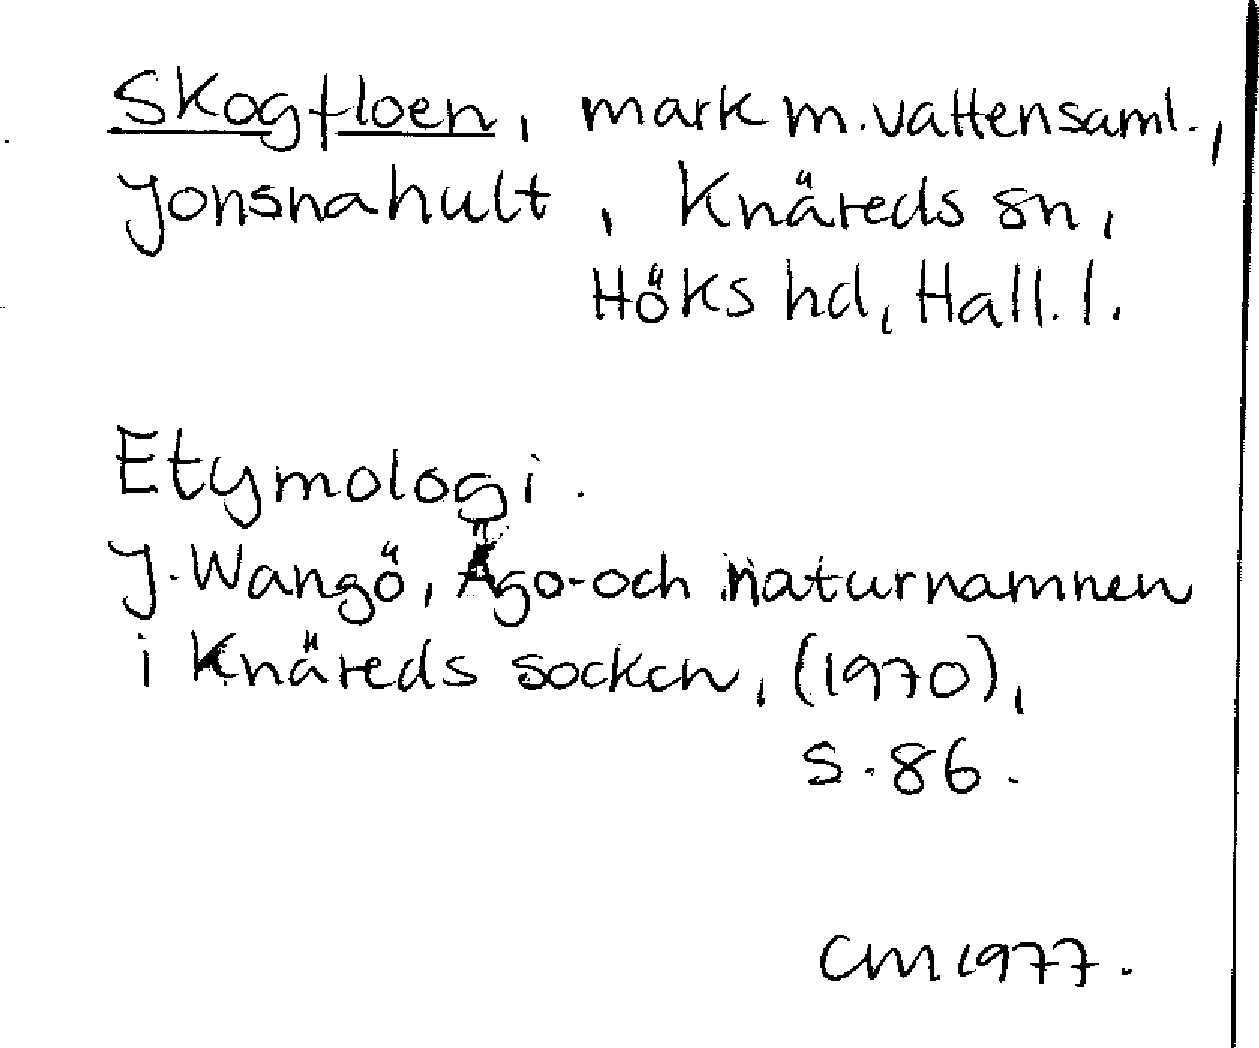 Skogfloen, mark m. vattensaml.,
Jonsnahult, Knäreds sn,
Höks hd, Hall. l.
Etymologi.
J. Wangö, Ägo- och naturnamnen
i Knäreds socken, (1970),
s. 86.
CM 1977.